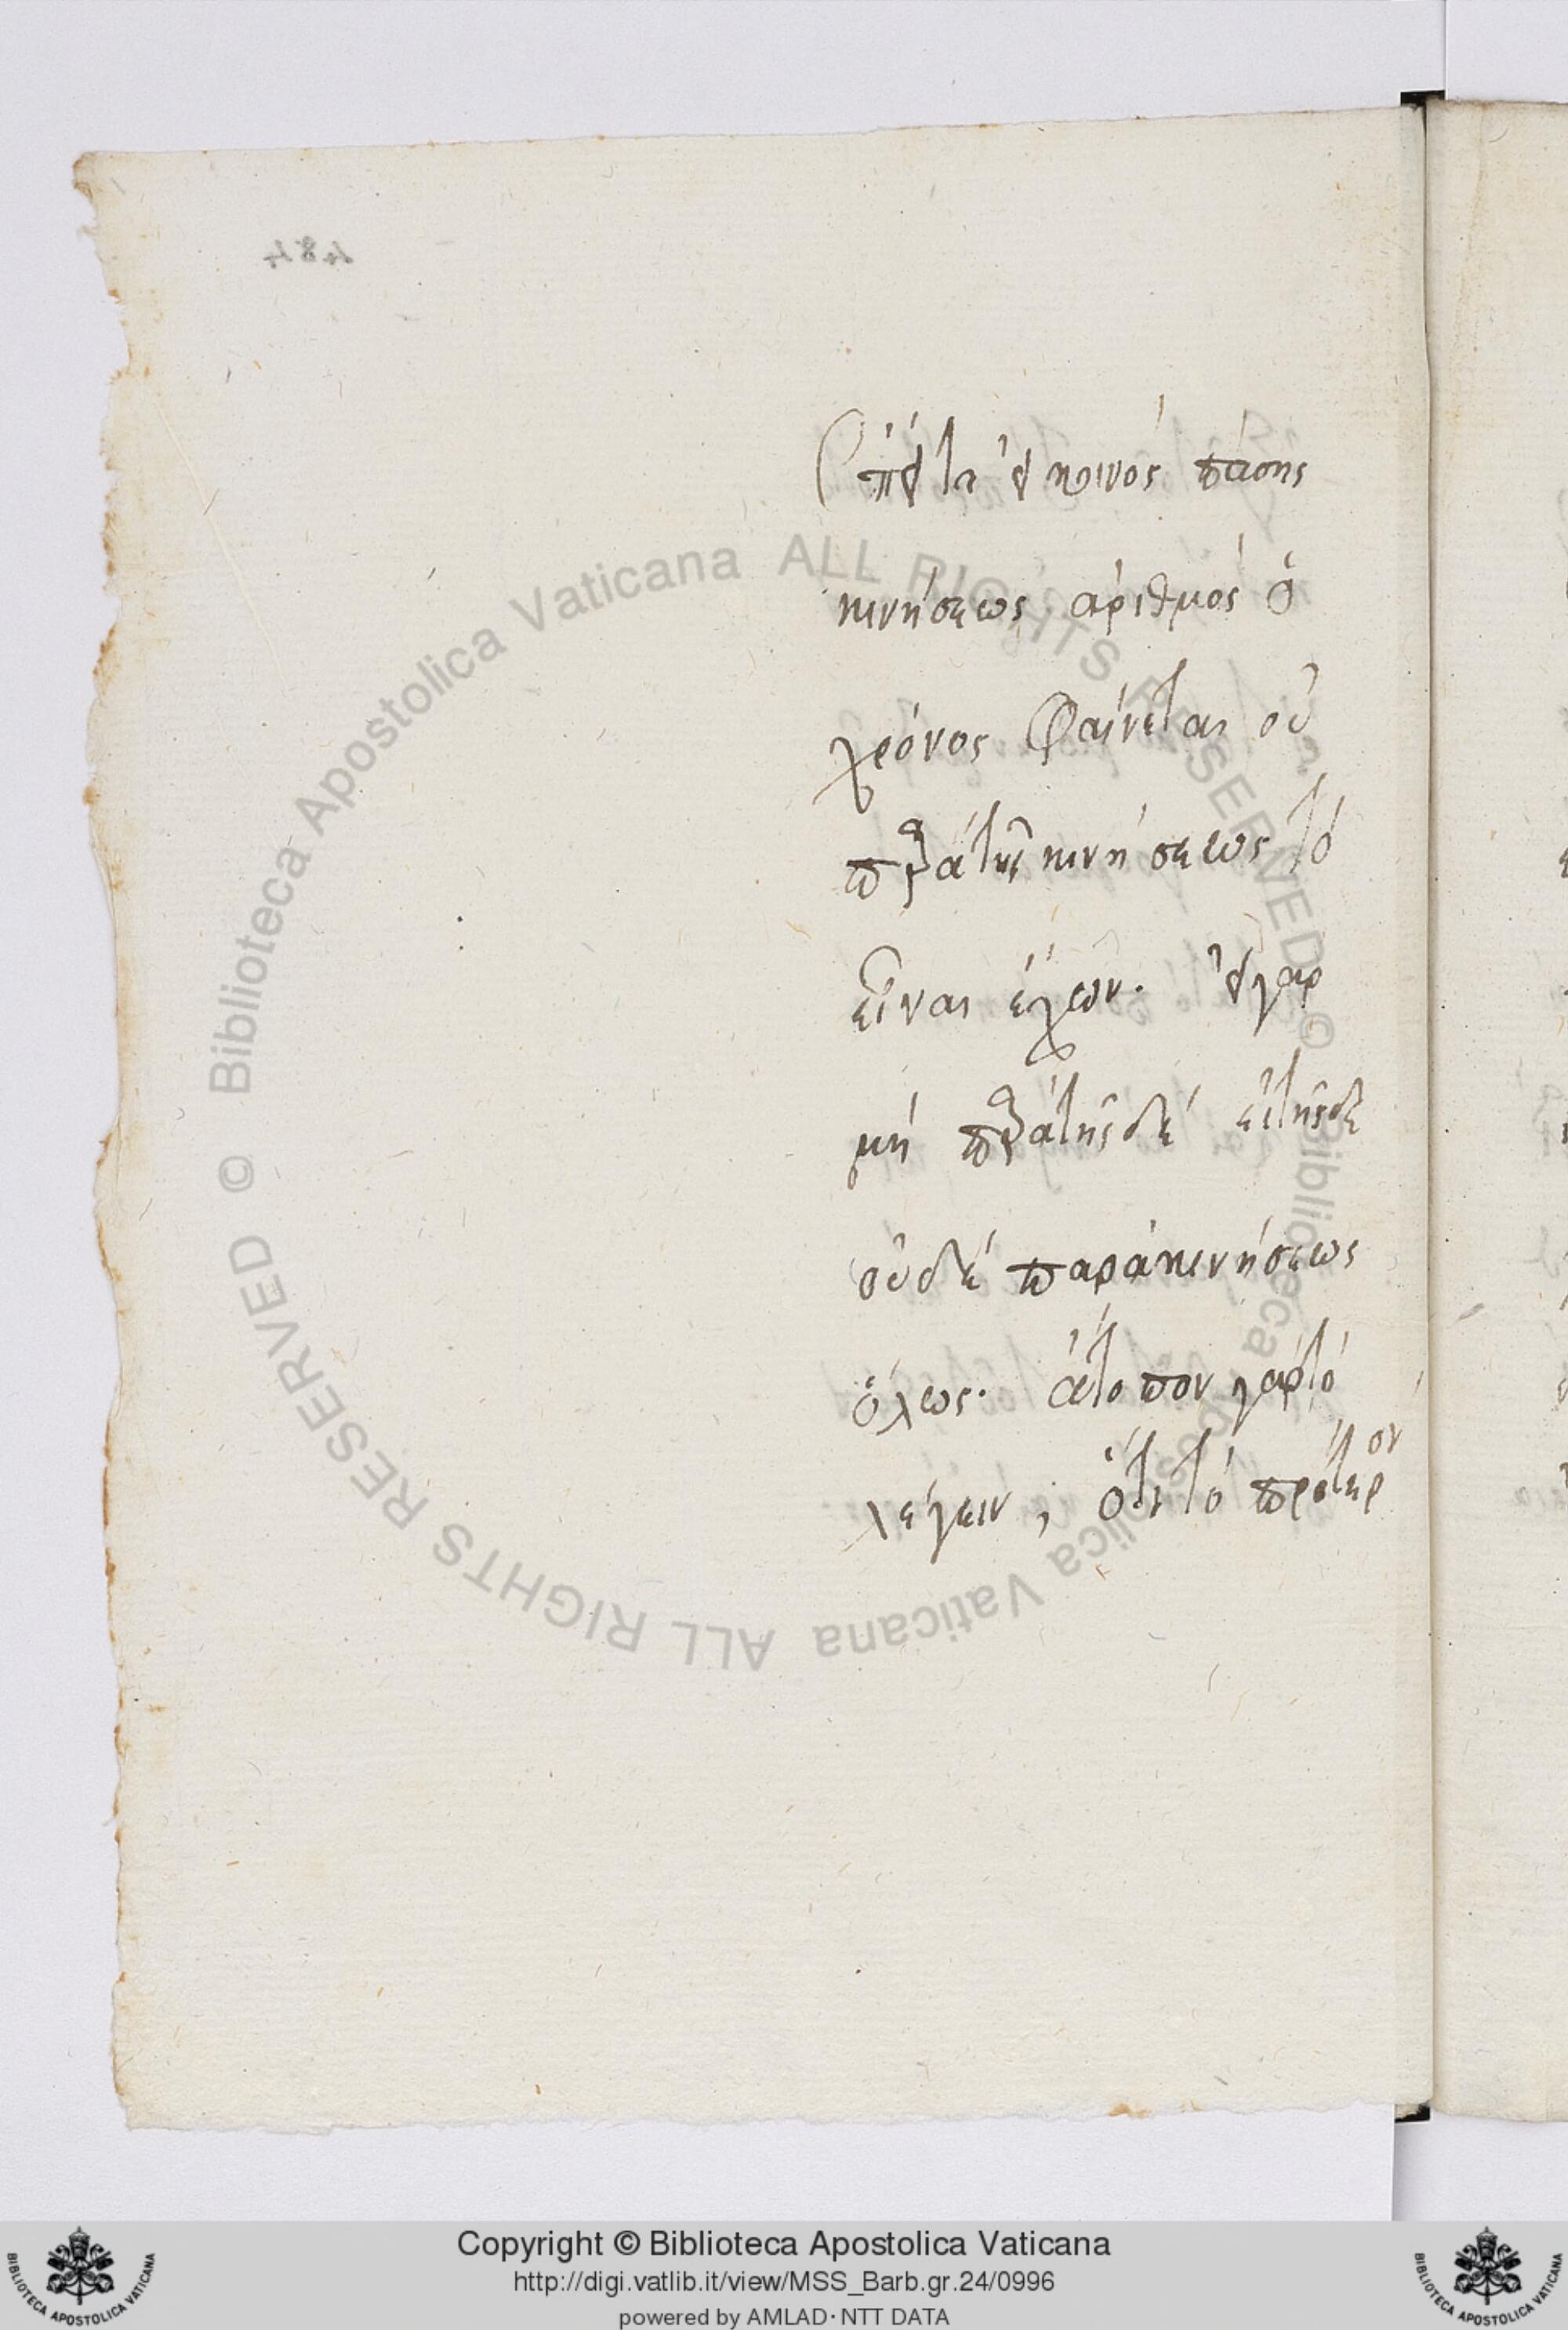 484
ἔπειτα εἰ κοινὸς πάσης
κινήσεως ἀριθμὸς ὁ
χρόνος φαίνεται οὐ
παρὰ τῆς κινήσεως τὸ
εἶναι ἔχων. εἰ γὰρ
μὴ παρὰ τῆς δὲ εἰ τῆς δὲ
οὐδὲ παρὰ κινήσεως
ὅλως. ἄτοπον γὰρ τὸ
λέγειν, ὅτι τὸ πρότερον
Biblioteca Apostolica Vaticana ALL RIGHTS RESERVED ©
Biblioteca Apostolica Vaticana ALL RIGHTS RESERVED ©
Copyright © Biblioteca Apostolica Vaticana
http://digi.vatlib.it/view/MSS_Barb.gr.24/0996
powered by AMLAD·NTT DATA
BIBLIOTECA APOSTOLICA VATICANA
BIBLIOTECA APOSTOLICA VATICANA